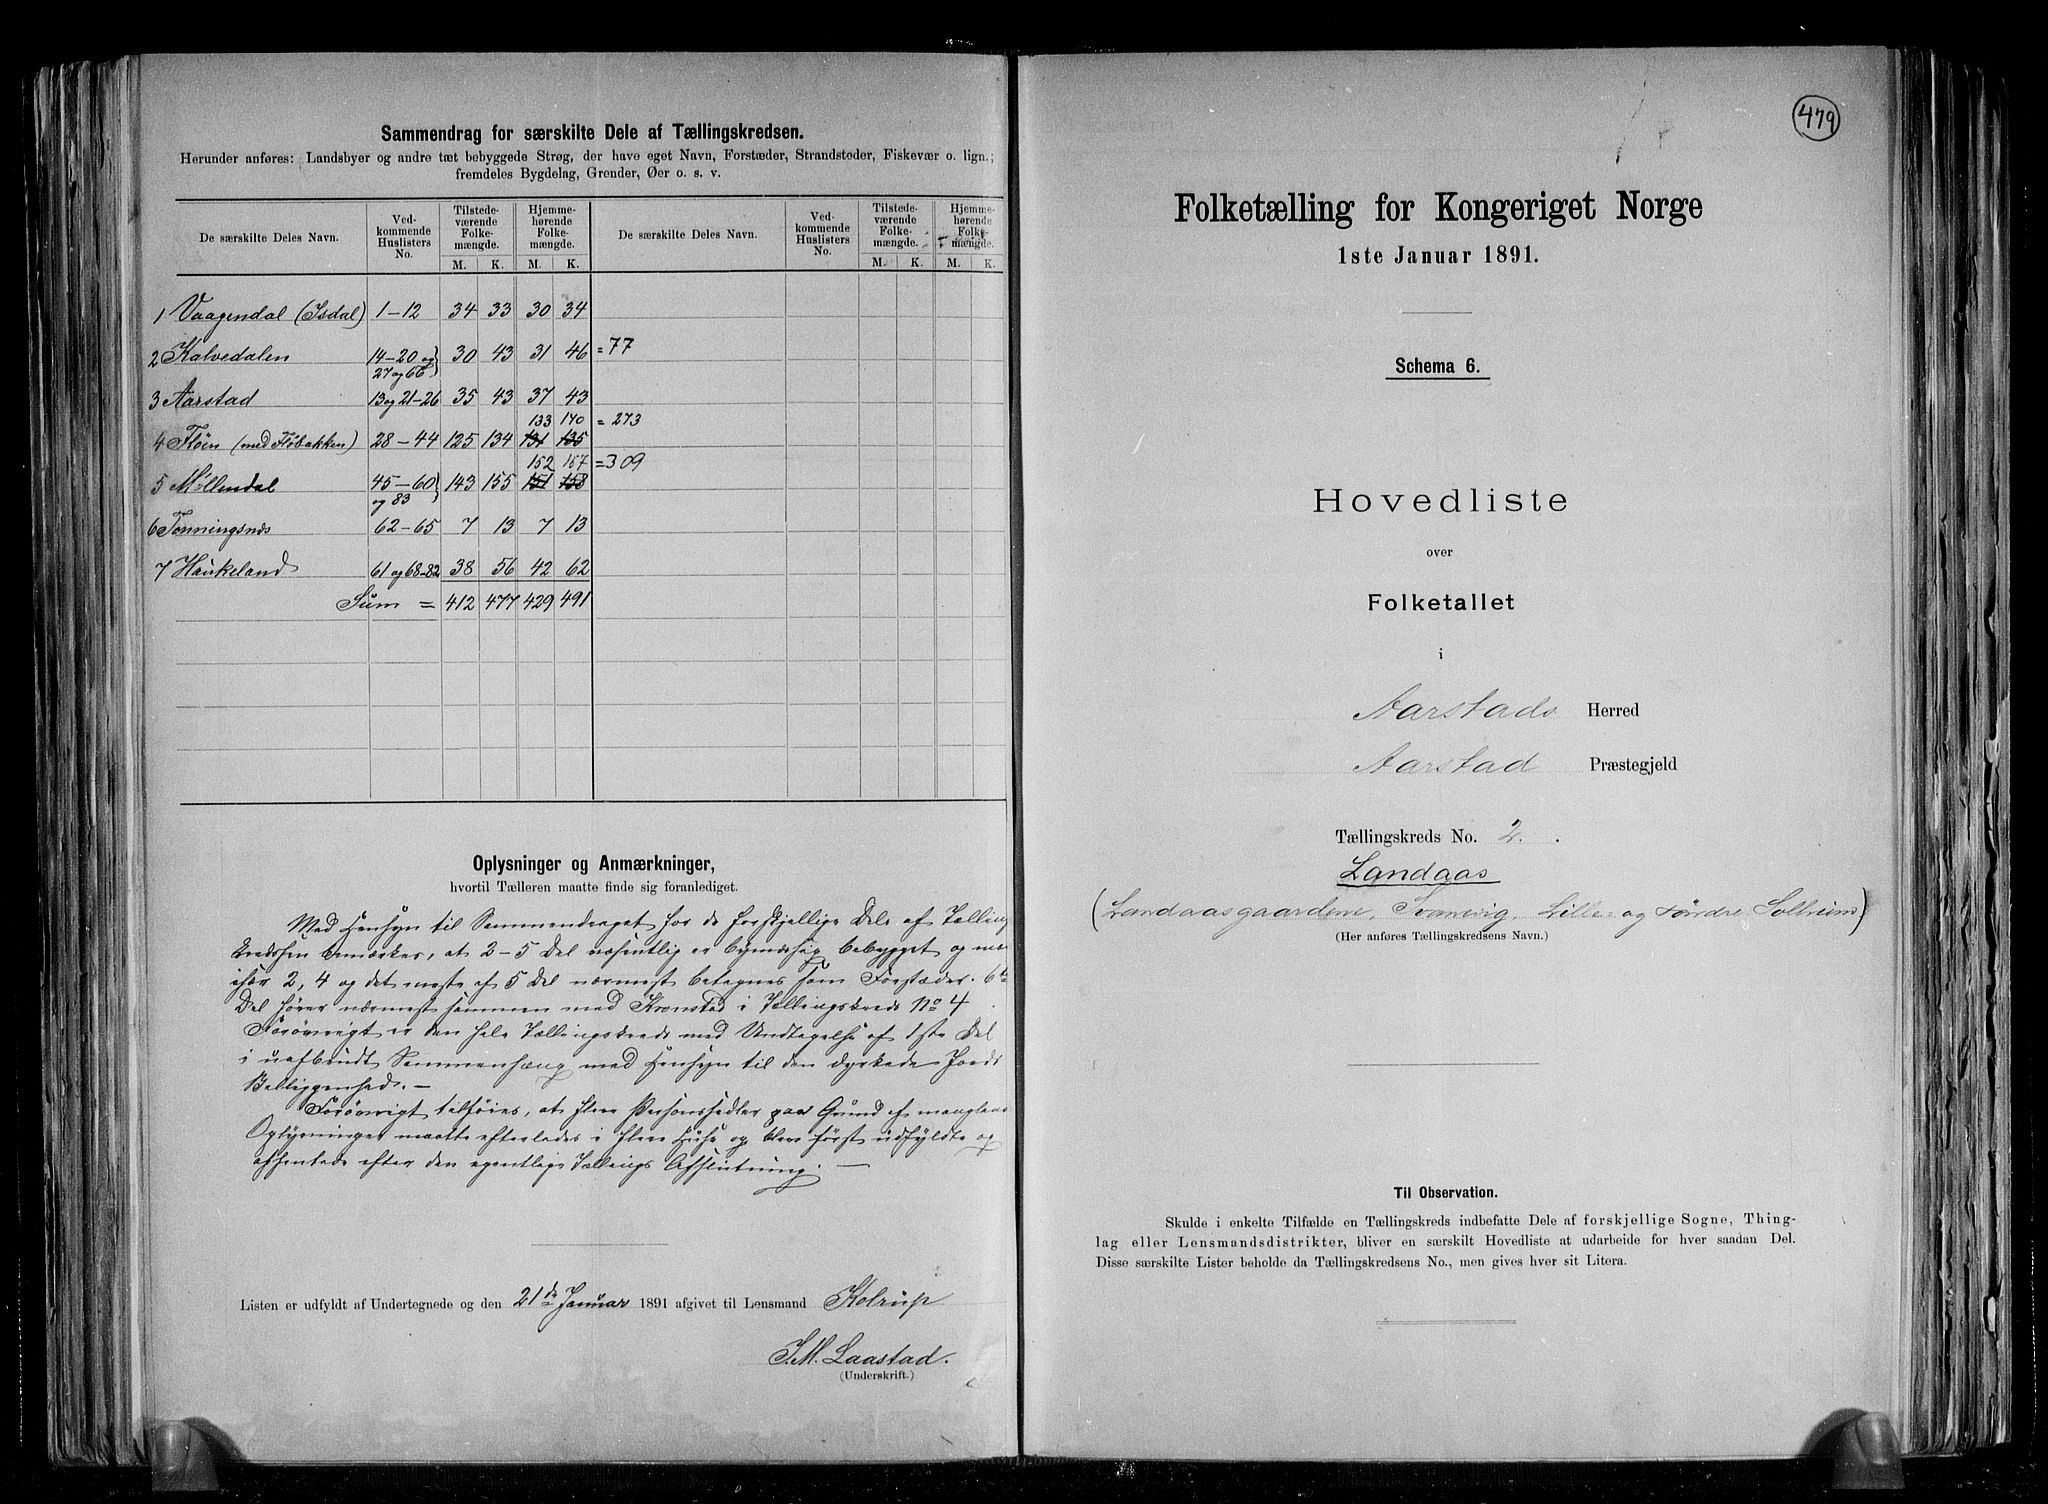 Sammendrag for særskilte Dele af Tællingskredsen.
Herunder anføres: Landsbyer og andre tæt bebyggede Strøg, der have eget Navn, Forstæder, Strandsteder, Fiskevær o. lign.;
fremdeles Bygdelag, Grender, Øer o. s. v.
De særskilte Deles Navn. Ved-kommende Huslisters No. Tilstede-værende Folke-mængde. Hjemme-hørende Folke-mængde. De særskilte Deles Navn. Ved-kommende Huslisters No. Tilstede-værende Folke-mængde. Hjemme-hørende Folke-mængde.
M. K. M. K. M. K. M. K.
1 Vaagendal (Isdal) 1-12 34 33 30 34
2 Kalvedalen 14-20 og 30 43 31 46 = 77
27 og 66
3 Aarstad 13 og 21-26 35 43 37 43
133 140 = 273
4 Fløen (med Fløbakken) 28-44 125 134 131 135
152 157 = 309
5 Møllendal 45-60 143 155 151 158
og 83
6 Tonningsnes 62-65 7 13 7 13
7 Haukeland 61 og 68-82 38 56 42 62
Sum = 412 477 429 491
Oplysninger og Anmærkninger,
hvortil Tælleren maatte finde sig foranlediget.
Med Hensyn til Sammendraget for de forskjellige Dele af Tælling
kredsen bemærkes, at 2-5 Del væsentlig er bymæssig bebygget og maa
især 2, 4 og det meste af 5 Del nærmest betegnes som Forstæder. 6te
Del hører nærmest sammen med Kronstad i Tællingskreds No 4
Forøvrigt er den hele Tællingskreds med Undtagelse af 1ste Del
i uafbrudt Sammenhæng med Hensyn til den dyrkede Jords
Beliggenhed. -
Forøvrigt tilføies, at flere Personssedler paa Grund af manglende
Oplysninger maatte efterlades i flere Huse og blev først udfyldte og
afhentede efter den egentlige Tællings Afslutning. -
Listen er udfyldt af Undertegnede og den 21de Januar 1891 afgivet til Lensmand Kolrup
J.M. Laastad.
(Underskrift.)
479
Folketælling for Kongeriget Norge
1ste Januar 1891.
Schema 6.
Hovedliste
over
Folketallet
i
Aarstads Herred
Aarstad Præstegjeld
Tællingskreds No. 2.
Landaas
(Landaasgaardene, Svanevig, Lille- og søndre Solheim)
(Her anføres Tællingskredsens Navn.)
Til Observation.
Skulde i enkelte Tilfælde en Tællingskreds indbefatte Dele af forskjellige Sogne, Thing-
lag eller Lensmandsdistrikter, bliver en særskilt Hovedliste at udarbeide for hver saadan Del.
Disse særskilte Lister beholde da Tællingskredsens No., men gives hver sit Litera.